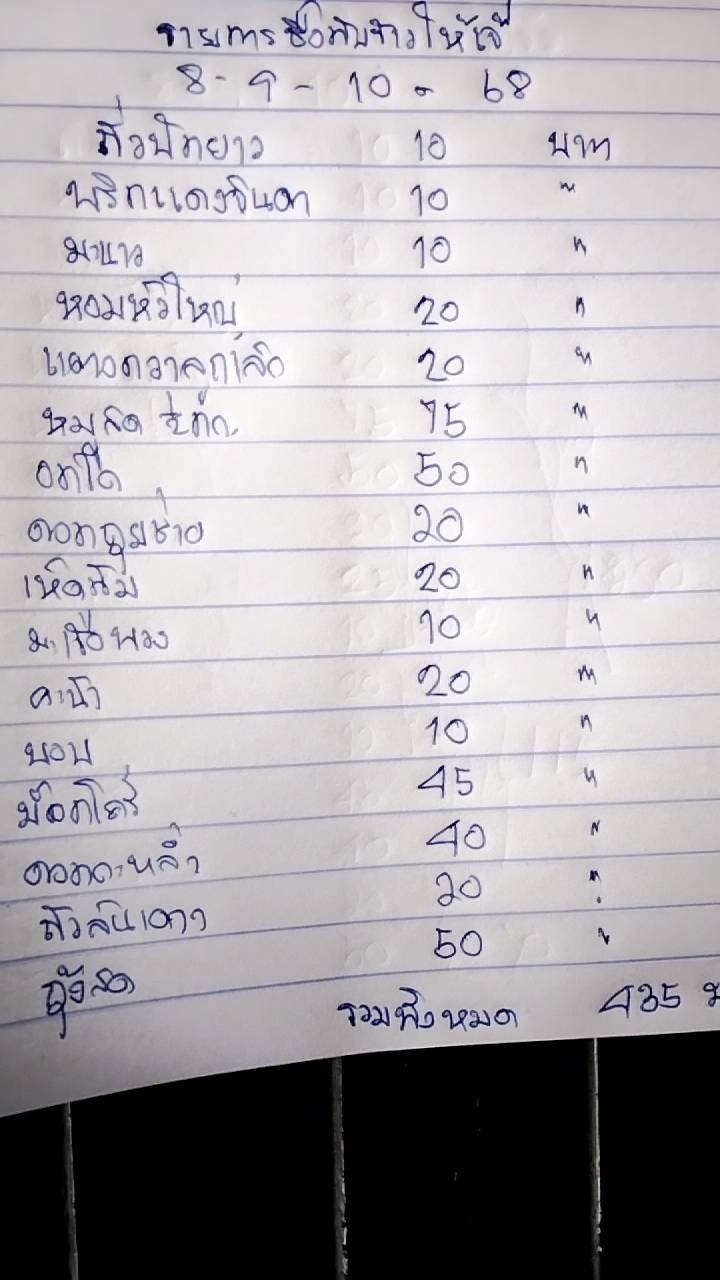 รายการซื้อกับข้าวให้เจ๊
8-9-10-68
ถั่วฝักยาว 10 บาท
พริกแดงจินดา 10 "
มะนาว 10 "
หอมหัวใหญ่ 20 "
แตงกวา 20 "
หมูสด 75 "
อกไก่ 50 "
ดอกกุยช่าย 20 "
เห็ด 20 "
มะเขือพวง 10 "
คะน้า 20 "
10 "
บล็อกโคลี่ 45 "
ดอกกะหล่ำ 40 "
ถั่วลันเตา 20 "
กุ้งสด 50 "
รวมทั้งหมด 435 บ